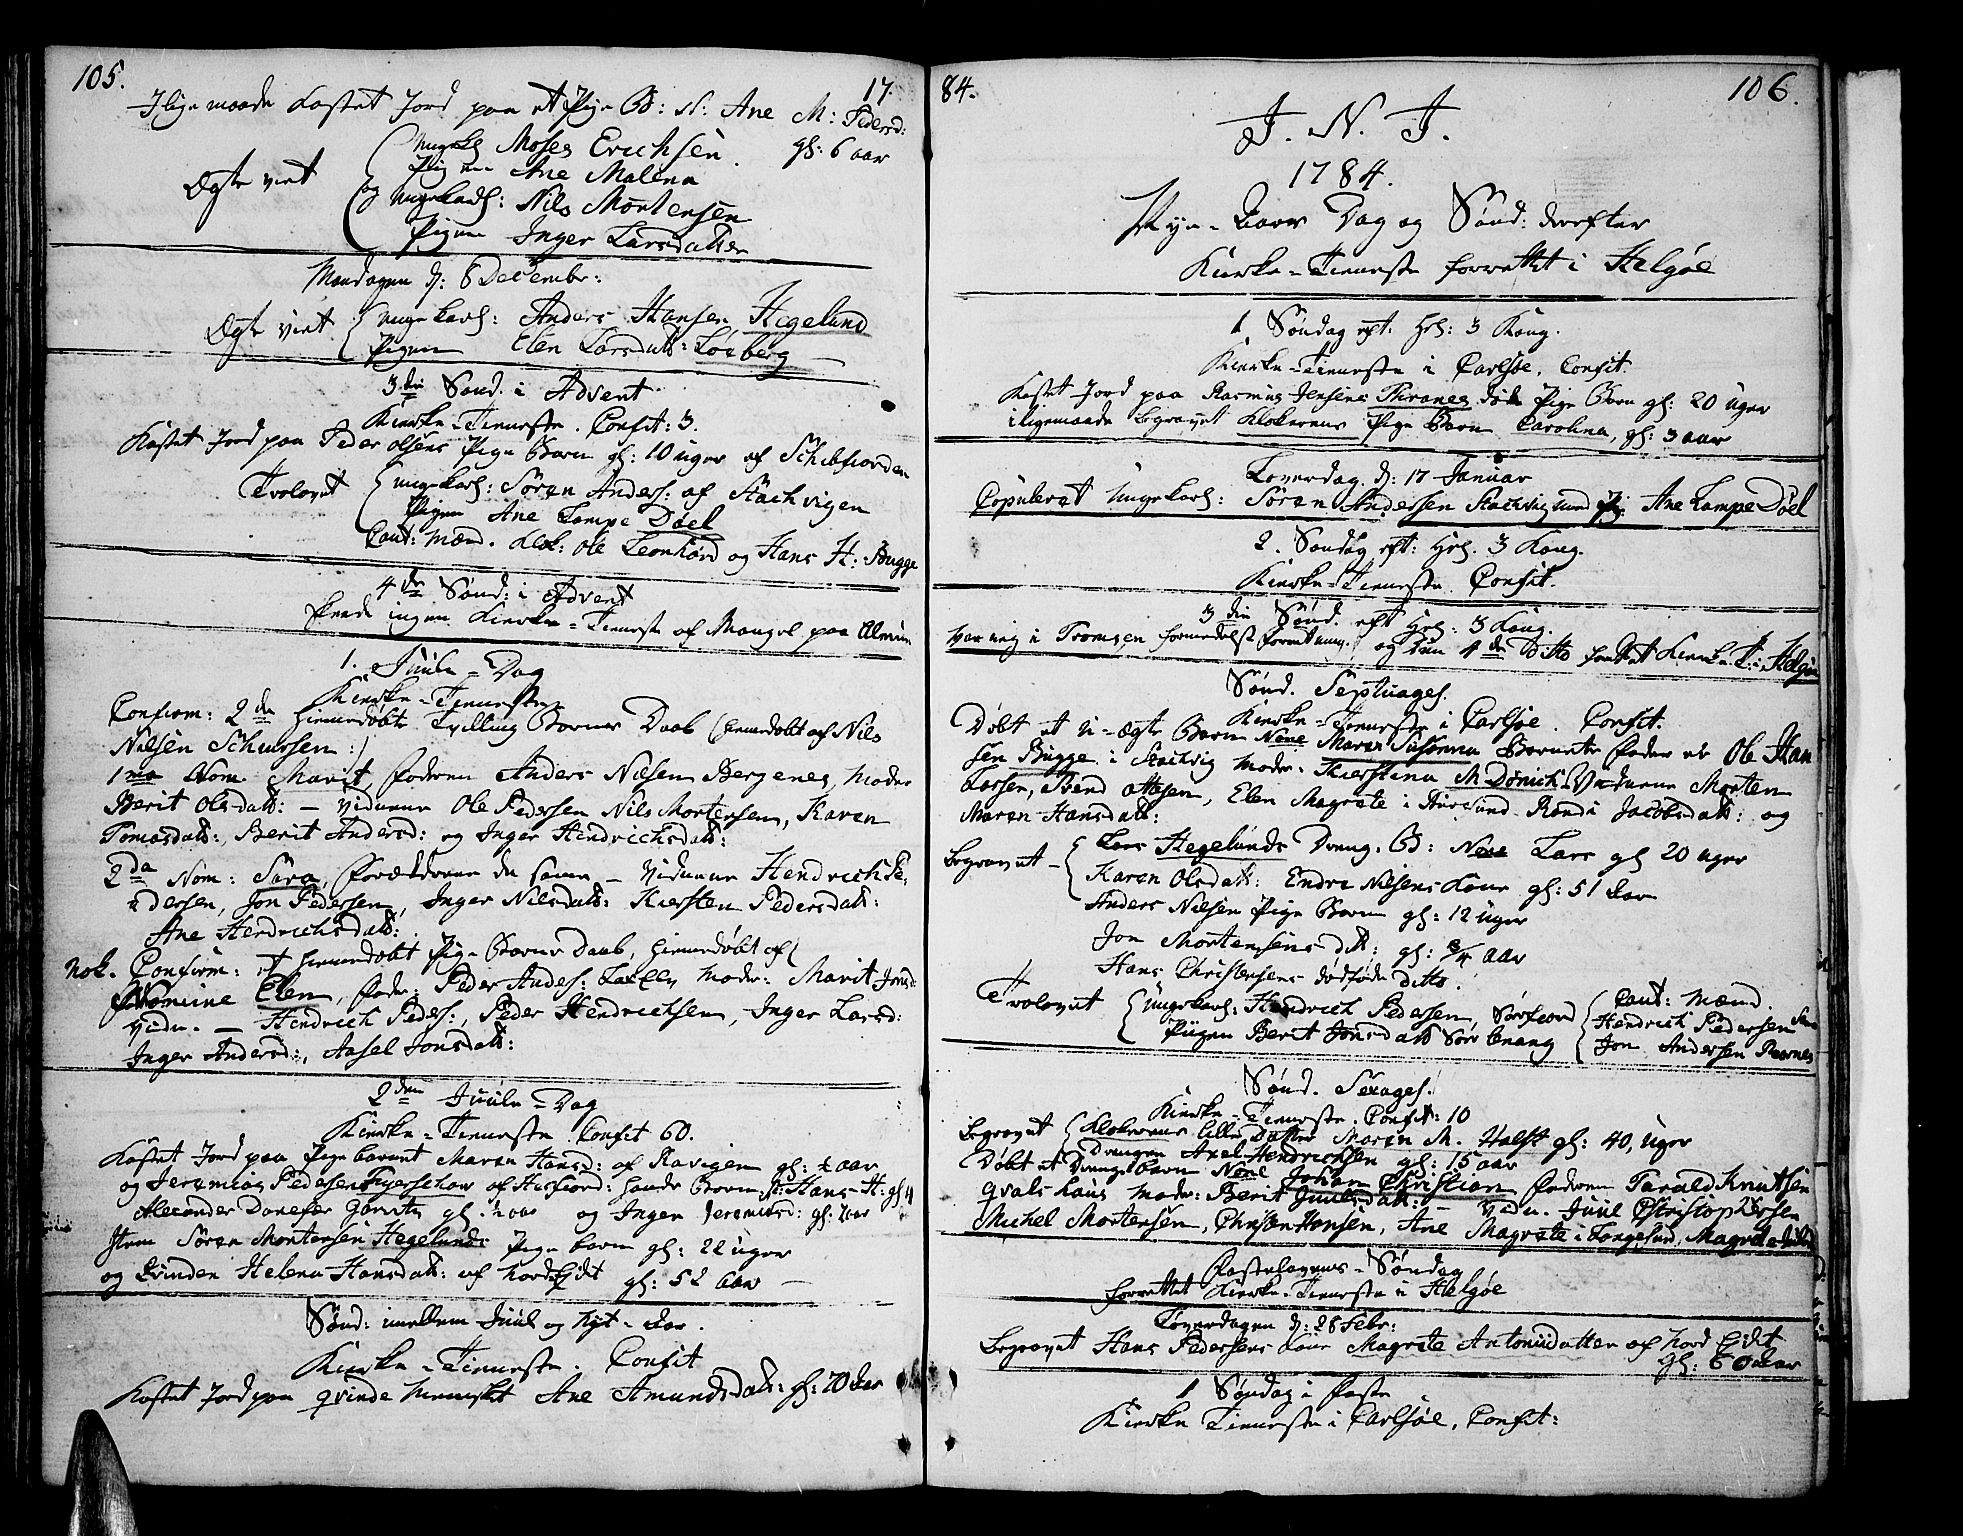 105.
17
Jlige maade Kastet Jord paa et Pige B: N: Ane M: Pedersd:
gl: 6 aar
Ægte viet
ungekl Moses Erichsen
Pigen Ane Malena
og ungekarl: Nils Mortensen
Pigen Inger Larsdatter
Mandagen d: 8 Decembr:
Ægte viet
ungekarl: Anders Hansen Hegelund
Pigen Elen Larsdatt: Loxberg
3die Sønd. i Advent
Kierke-Tieneste. Confit: 3.
Kastet Jord paa Peder Olsens Pige Barn gl: 10 uger af Schibfiorden
Trolovet
ungekarl: Søren Anders: af Stachvigen
Pigen Ane Lampe Døel
Caut: Mænd. Klok: Ole Leonhard og Hans H: Bugge
4de Sønd: i Advent
skeede ingen Kierke-Tieneste af Mangel paa Almue
1. Juule-Dag
Kierke-Tieneste
Confirm: 2de hiemedøbte Tvilling Børns Daab (hiemedøbt af Nils
Nilsen Schursen:)
1ma Nom: Marit, faderen Anders Nilsen Bergenes, Moder
Berit Olsdatt: — Vidnerne Ole Pedersen Nils Mortensen, Karen
Tomasdatt:, Berit Andersd: og Inger Hendrichsdatt:
2da Nom: Sara, forældrene de samme — Vidnerne Hendrich Pe-
dersen, Jon Pedersen, Inger Nilsdatt: Kiersten Pedersdatt:
Ane Hendrichsdatt:
Nok. Confirm: et hiemedøbt Pige Barns Daab, hiemedøbt af (
Nomine Elen, fader: Peder Anders: Modr: Marit Jonsd:
Vidn. — Hendrich Peders:, Peder Hendrichsen, Inger Larsd:
Inger Andersd:, Aasel Jonsdatt:
2den Juule-Dag
Kierke-Tieneste. Confit 60.
Kastet Jord paa Pigebarnet Maren Hansd: af Ravigen gl: ½ aar
og Jeremias Pedersen af hands Børn Hans H: gl 4
Alexander gl. ½ aar og Inger Jeremiasd: gl: 2 aar
Item Søren Mortensen Hegelunds Pige barn gl: 22 uger
og Qvinden Helena Hansdatt: af Nord Eidet gl: 52 aar —
Sønd: imellem Juul og Nyt-aar.
Kierke-Tieneste. Confit
Kastet Jord paa qvinde Mennisket Ane Amundsdatt: gl: 70 aar
84.
106.
J. N. J.
1784.
Nye-Aars Dag og Sønd: derefter
Kierke-Tieneste forrettet i Helgøe
1 Søndag eft: Hel: 3 Kong.
Kierke-Tieneste i Carlsøe, Confit.
Kastet Jord paa Rasmus Jensens Thranes døde Pige Barn gl: 20 uger
iligemaade begravet Klokerens Pige Barn Carolina, gl: 3 aar
Løverdag d: 17 Januar
Copuleret ungekarl: Søren Andersen Stachvig med Pig. Ane Lampe Døel
2. Søndag eft: Hel. 3 Kong.
Kierke-Tieneste Confit.
3die Sønd. eft Hel: 3 Kong.
Var ieg i Tromsen formedelst og den 4de Ditto forrettet Kierke-T: i Helgøe
Sønd. Septuages.
Kierke-Tieneste i Carlsøe. Confit.
Døbt et U-ægte Barn Nom Maren Susanna Barnets fader er Ole Han
sen Bugge i Stachvig Modr. Kierstena M. Dønich Vidnerne Morten
Larsen, Arend Ottesen, Elen Magrete i Rønde Jacobsdatt: og
Maren Hansdatt:
Begravet
Lars Hegelunds Dreng. B: Nom Lars gl 20 uger
Karen Olsdatt: Endre Nilsens Kone gl: 51 aar
Anders Nilsen Pige Barn gl: 12 uger
Jon Mortensens dito: gl: ¾ aar
Hans Christensens dødføde Ditto.
Trolovet
Ungekarl: Hendrich Pedersen, Sørfiord
Pigen Berit Jonsdatt Sørlenang
Caut: Mænd.
Hendrich Pedersen
Jon Andersen
Sønd. Sexages.
Kierke-Tieneste. Confit: 10
Begravet
Klokerens lille Datter Maren M. Holst gl: 40, uger
Drengen Axel Hendrichsen gl: 15 aar
Døbt et Drengebarn Nom Johan Christian faderen Tarald Knutsen
Modr: Berit Juulsdatt: — Vidn. Juul Christophersen
Michel Mortensen, Christen Hansen, Ane Magrete i Langesund, Magrete
Fastelavns-Søndag
forrettet Kierke-Tieneste i Helgøe
Løverdagen d: 28 Febr:
Begravet Hans Pedersens Kone Magrete Antoniidatter af Nord Eidet
gl: 60 aar
1 Søndag i Faste
Kierke Tieneste i Carlsøe, Confit: